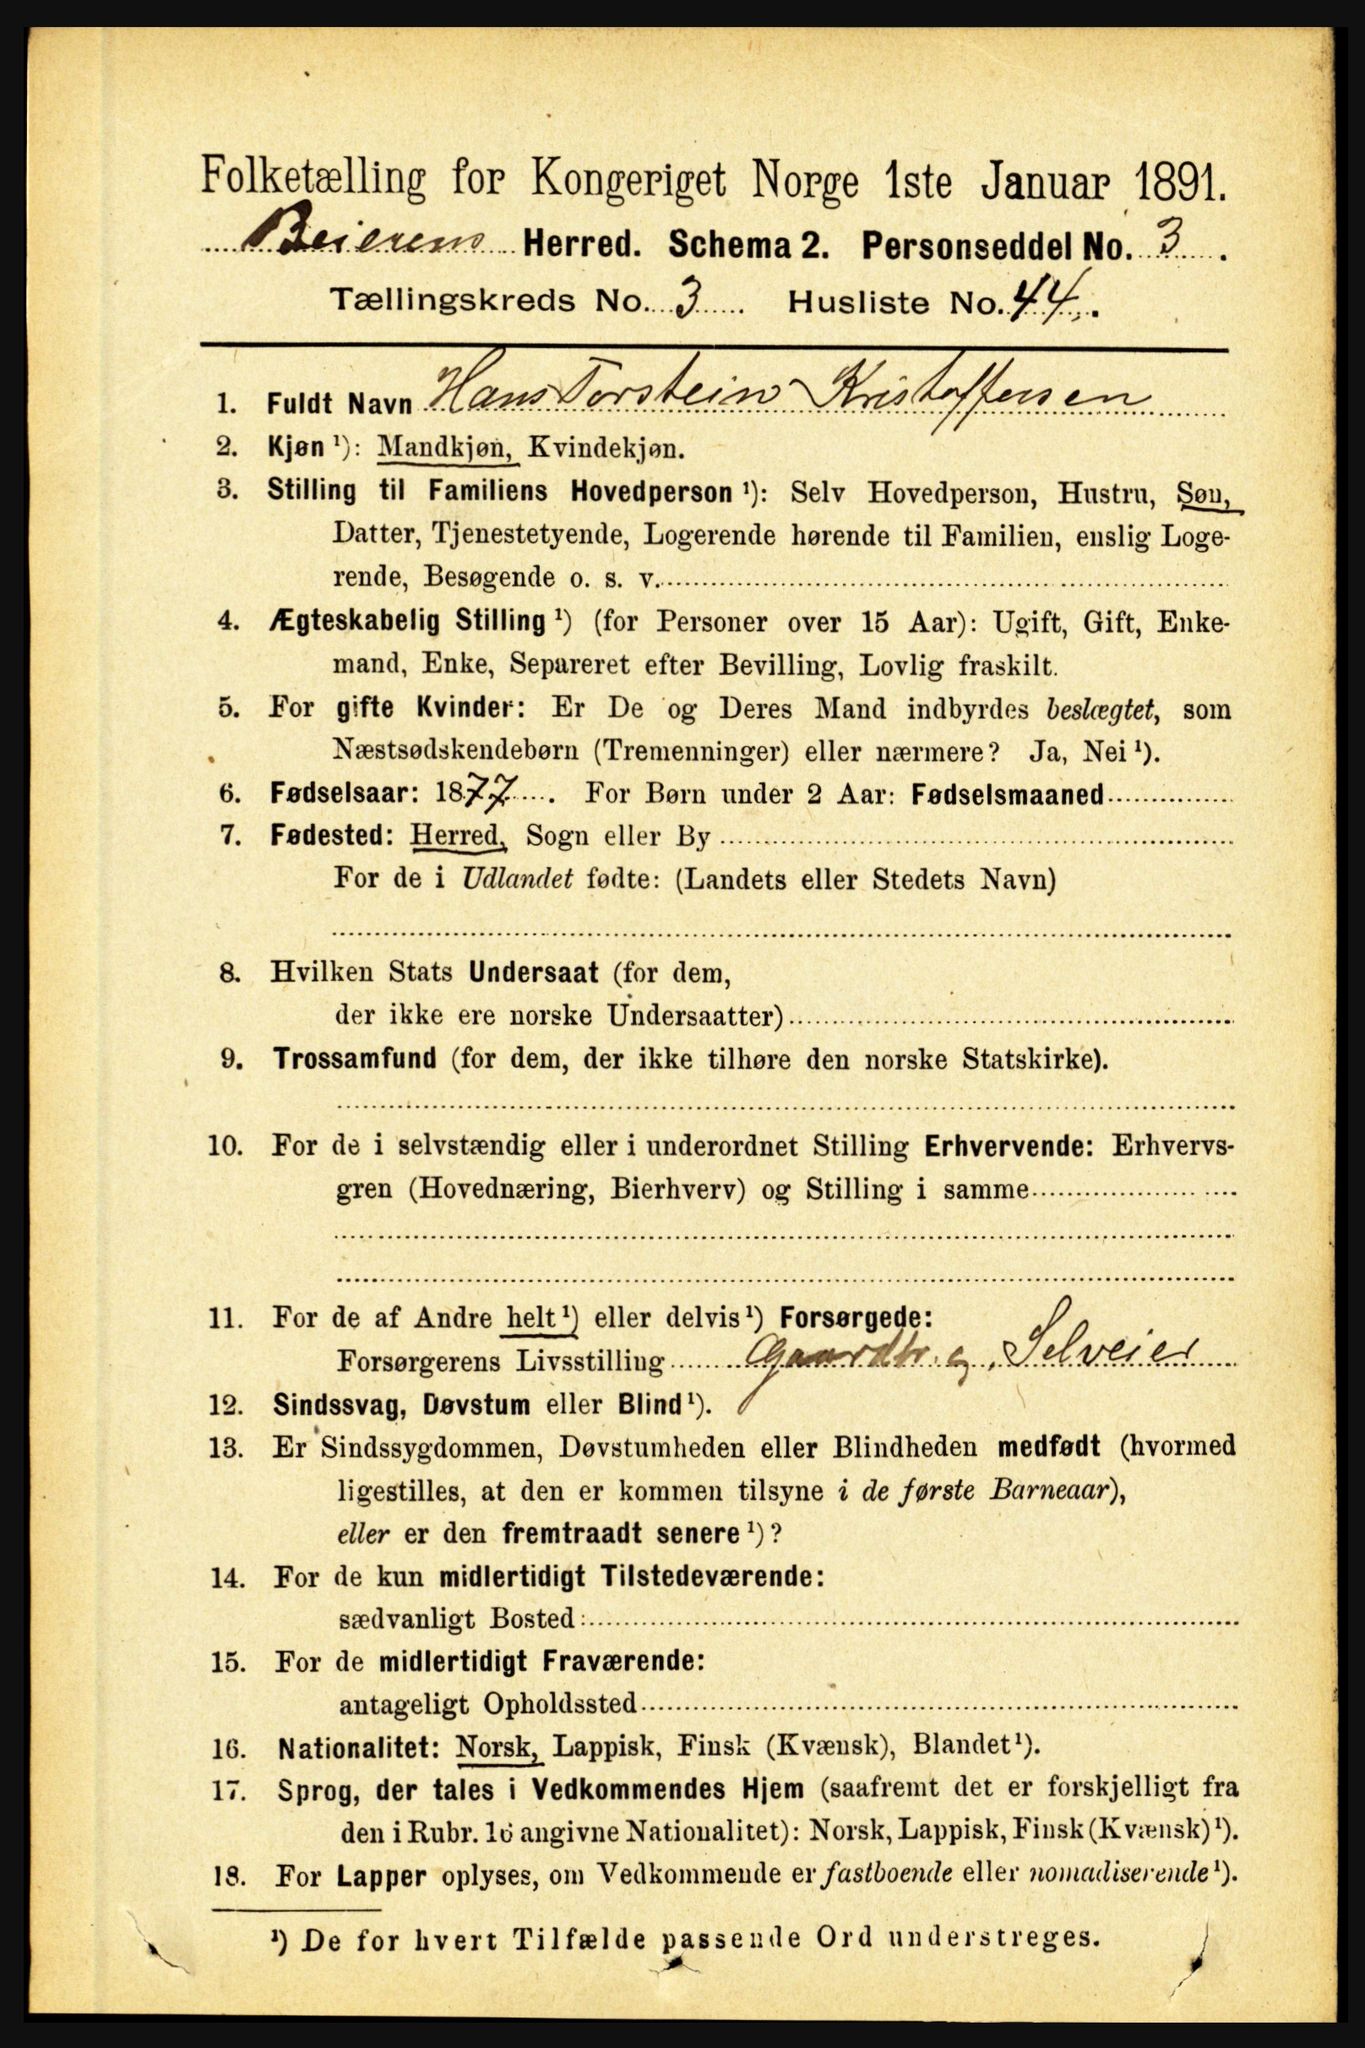 Folketælling for Kongeriget Norge 1ste Januar 1891.
Beierens Herred. Schema 2. Personseddel No. 3.
Tællingskreds No. 3 Husliste No. 44.
1. Fuldt Navn Hans Torstein Kristoffersen
2. Kjøn ¹): Mandkjøn, Kvindekjøn.
3. Stilling til Familiens Hovedperson ¹): Selv Hovedperson, Hustru, Søn,
Datter, Tjenestetyende, Logerende hørende til Familien, enslig Loge-
rende, Besøgende o. s. v.
4. Ægteskabelig Stilling ¹) (for Personer over 15 Aar): Ugift, Gift, Enke-
mand, Enke, Separeret efter Bevilling, Lovlig fraskilt.
5. For gifte Kvinder: Er De og Deres Mand indbyrdes beslægtet, som
Næstsødskendebørn (Tremenninger) eller nærmere? Ja, Nei ¹).
6. Fødselsaar: 1877. For Børn under 2 Aar: Fødselsmaaned
7. Fødested: Herred, Sogn eller By
For de i Udlandet fødte: (Landets eller Stedets Navn)
8. Hvilken Stats Undersaat (for dem,
der ikke ere norske Undersaatter)
9. Trossamfund (for dem, der ikke tilhøre den norske Statskirke).
10. For de i selvstændig eller i underordnet Stilling Erhvervende: Erhvervs-
gren (Hovednæring, Bierhverv) og Stilling i samme
11. For de af Andre helt ¹) eller delvis ¹) Forsørgede:
Forsørgerens Livsstilling Gaardbr. og Selveier
12. Sindssvag, Døvstum eller Blind ¹).
13. Er Sindssygdommen, Døvstumheden eller Blindheden medfødt (hvormed
ligestilles, at den er kommen tilsyne i de første Barneaar),
eller er den fremtraadt senere ¹)?
14. For de kun midlertidigt Tilstedeværende:
sædvanligt Bosted:
15. For de midlertidigt Fraværende:
antageligt Opholdssted
16. Nationalitet: Norsk, Lappisk, Finsk (Kvænsk), Blandet ¹).
17. Sprog, der tales i Vedkommendes Hjem (saafremt det er forskjelligt fra
den i Rubr. 16 angivne Nationalitet): Norsk, Lappisk, Finsk (Kvænsk) ¹).
18. For Lapper oplyses, om Vedkommende er fastboende eller nomadiserende ¹).
¹) De for hvert Tilfælde passende Ord understreges.